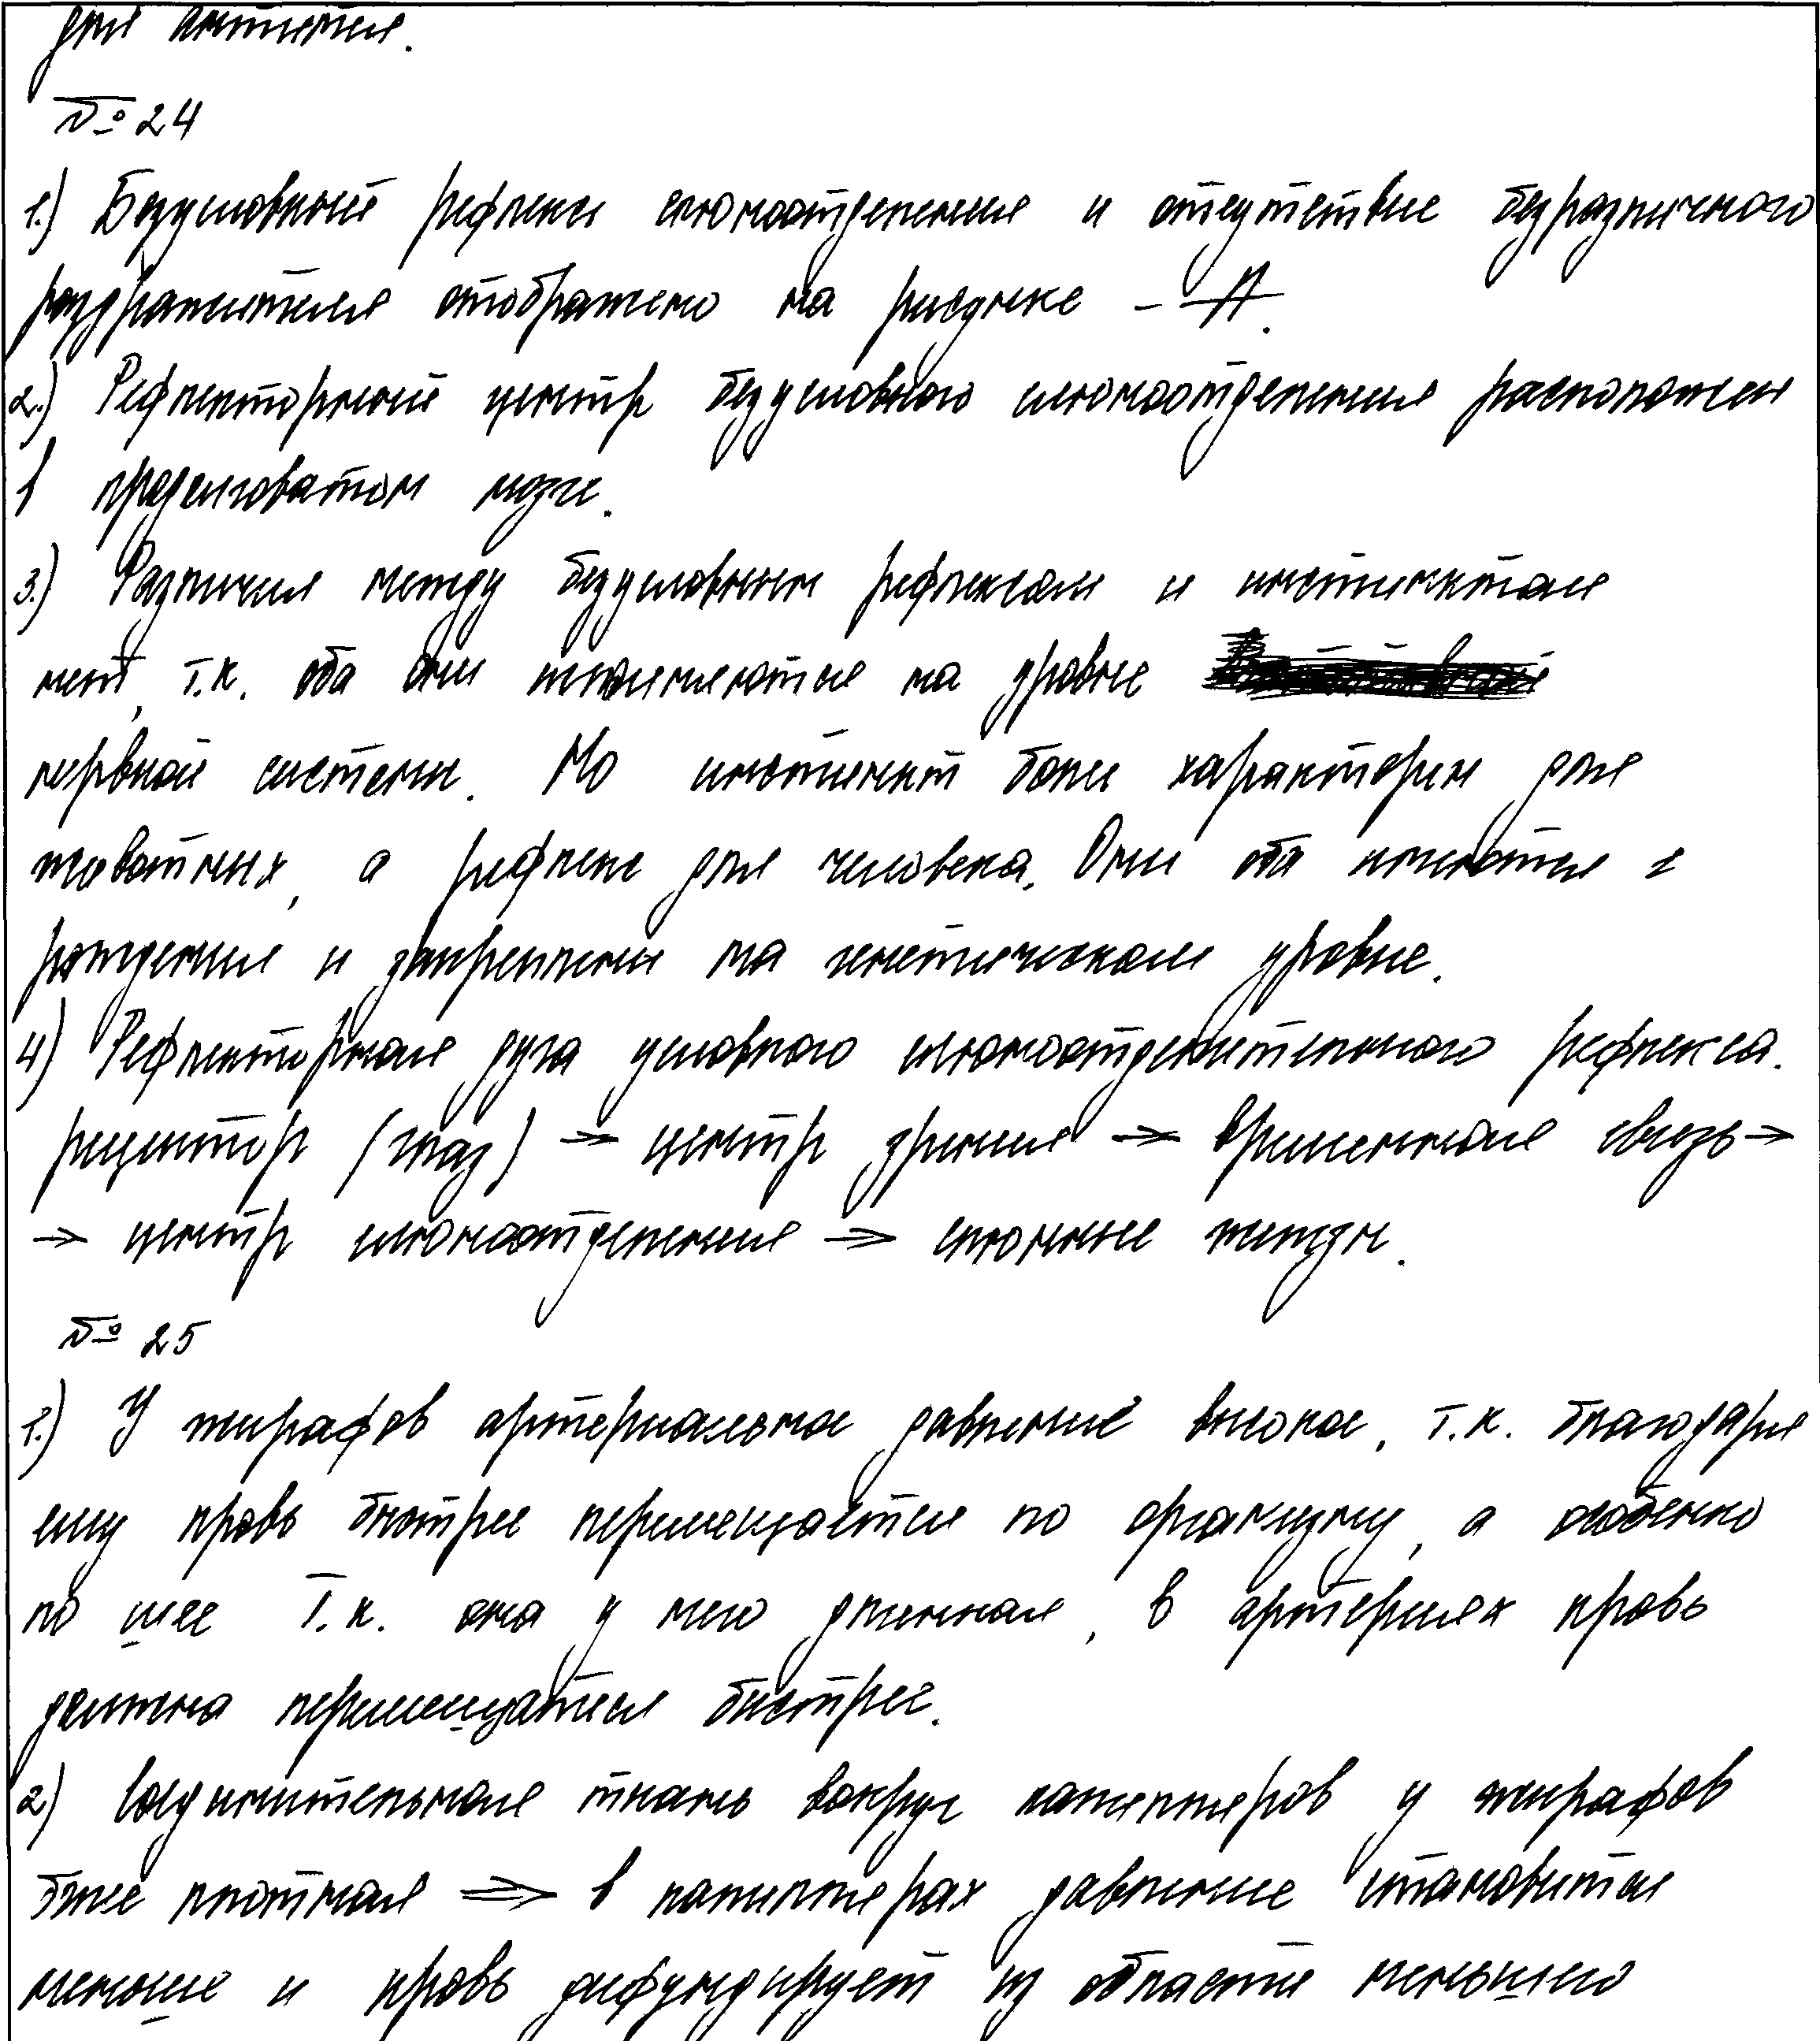 для
№ 24
1.) Безусловный рефлекс слюноотделения и отсутствие безразличного
раздражителя отображено на рисунке – А.
2.) Рефлекторный центр безусловного слюноотделения расположен
в продолговатом мозге.
3.) Различия между безусловным рефлексом и инстинктом
нет, т.к. оба они на уровне
нервной системы. Но инстинкт более характерен для
животных, а рефлекс для человека. Они оба имеются с
рождения и закреплены на генетическом уровне.
4) Рефлекторная дуга условного слюноотделительного рефлекса.
рецептор (глаз) → центр зрения → временная связь →
→ центр слюноотделения → слюнные железы.
№ 25
1.) У жирафов артериальное давление высокое, т.к. благодаря
ему кровь быстрее перемещается по организму, а особенно
по шее т.к. она у него длинная, в артериях кровь
должна перемещаться быстрее.
2) Соединительная ткань вокруг капилляров у жирафов
более плотная ⇒ в капиллярах давление становится
меньше и кровь дифундирует из области меньшего